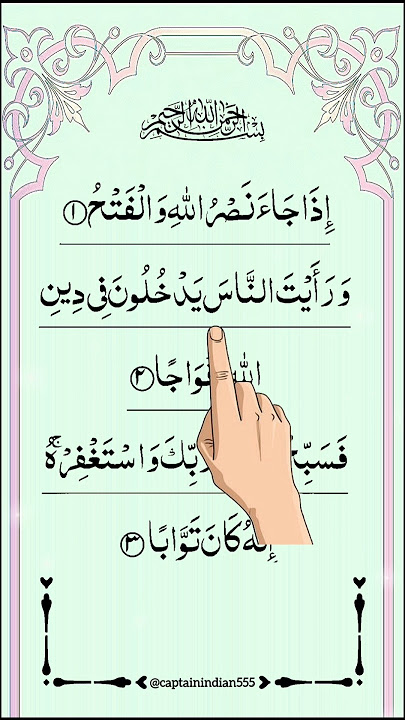 بسم الله الرحمن الرحيم
إِذَا جَاءَ نَصْرُ اللهِ وَ الْفَتْحُ ۝١
وَ رَأَيْتَ النَّاسَ يَدْخُلُونَ فِي دِينِ
اللهِ وَاجًا ۝٢
فَسَبِّحْ رَبِّكَ وَ اسْتَغْفِرْهُ
إِنَّهُ كَانَ تَوَّابًا ۝٣
@captainindian555